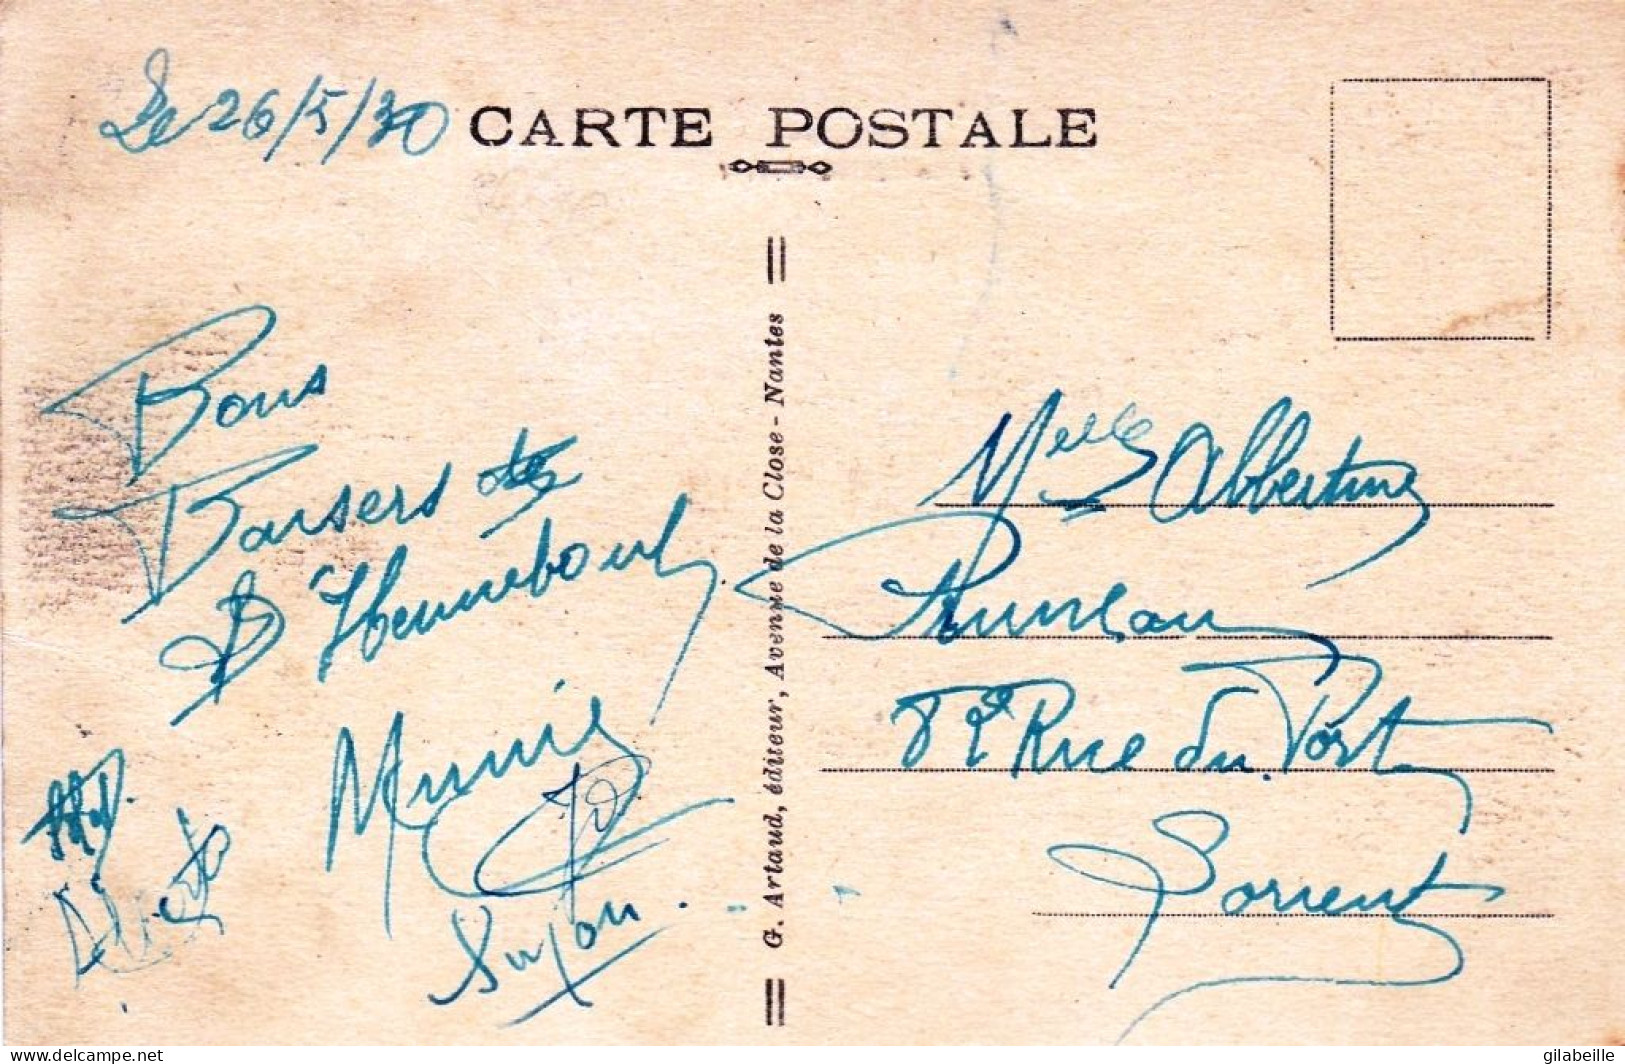 Le 26/5/30
CARTE POSTALE
Bons
Baisers de
D'Hennebont
Mimie
Suzon.
G. Artaud, éditeur, Avenue de la Close - Nantes
Melle Albertine
8 Rue du Port
Lorient
delcampe.net
gilabeille